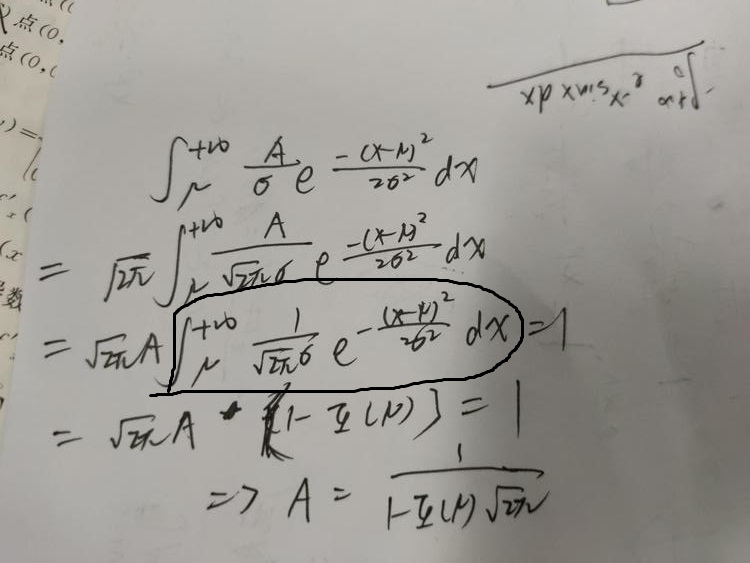 点(0,
点(0,
∫_μ^{+∞} \frac{A}{σ} e^{\frac{-(x-μ)^2}{2σ^2}} dx
= \sqrt{2π} ∫_μ^{+∞} \frac{A}{\sqrt{2π}σ} e^{\frac{-(x-μ)^2}{2σ^2}} dx
= \sqrt{2π} A ∫_μ^{+∞} \frac{1}{\sqrt{2π}σ} e^{-\frac{(x-μ)^2}{2σ^2}} dx = 1
= \sqrt{2π} A · [1 - Φ(μ)] = 1
=> A = \frac{1}{1-Φ(μ)\sqrt{2π}}
∫_0^{+∞} e^{-x} sinx dx